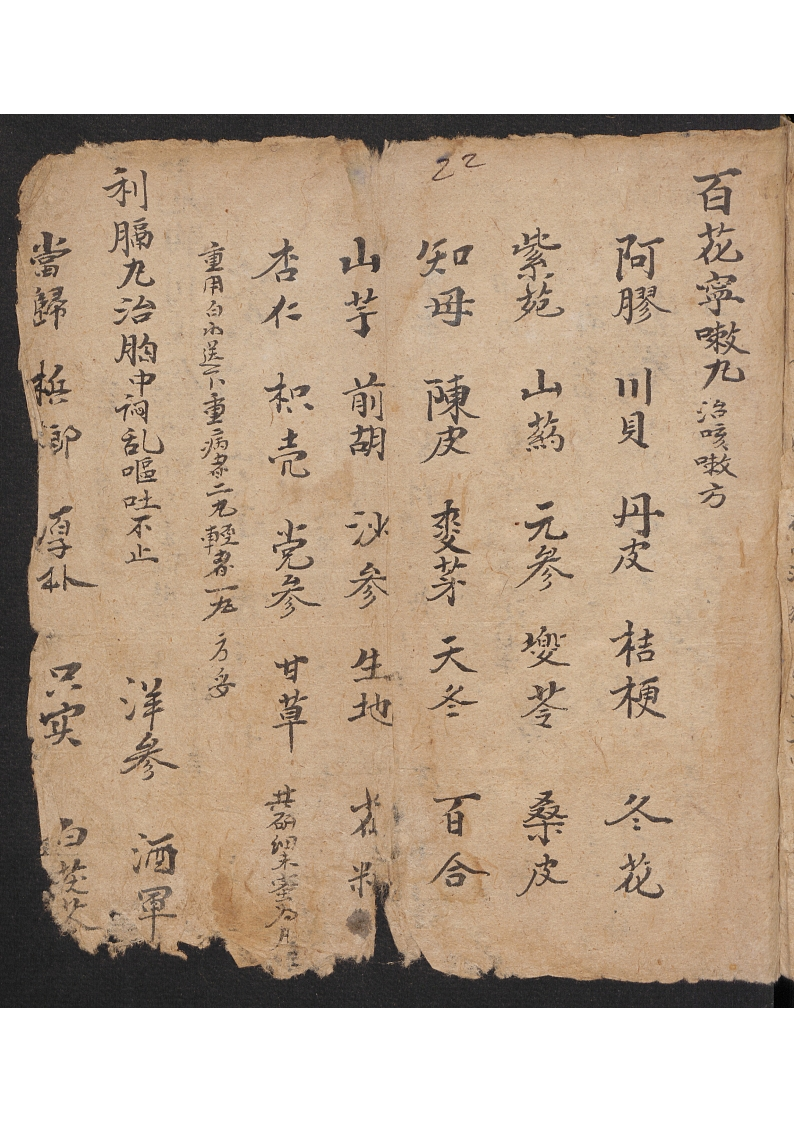 22
百花寧嗽九 治咳嗽方
阿膠 川貝 丹皮 桔梗 冬花
紫苑 山藥 元参 茯苓 桑皮
知母 陳皮 麦芽 天冬 百合
山芋 前胡 沙参 生地 米
杏仁 枳壳 党参 甘草 共研細末蜜为
重用白水送下重病者二九輕者一九方妥
利膈九治胸中 乱嘔吐不止 洋参 酒軍
當歸 梹郎 厚朴 只实 白